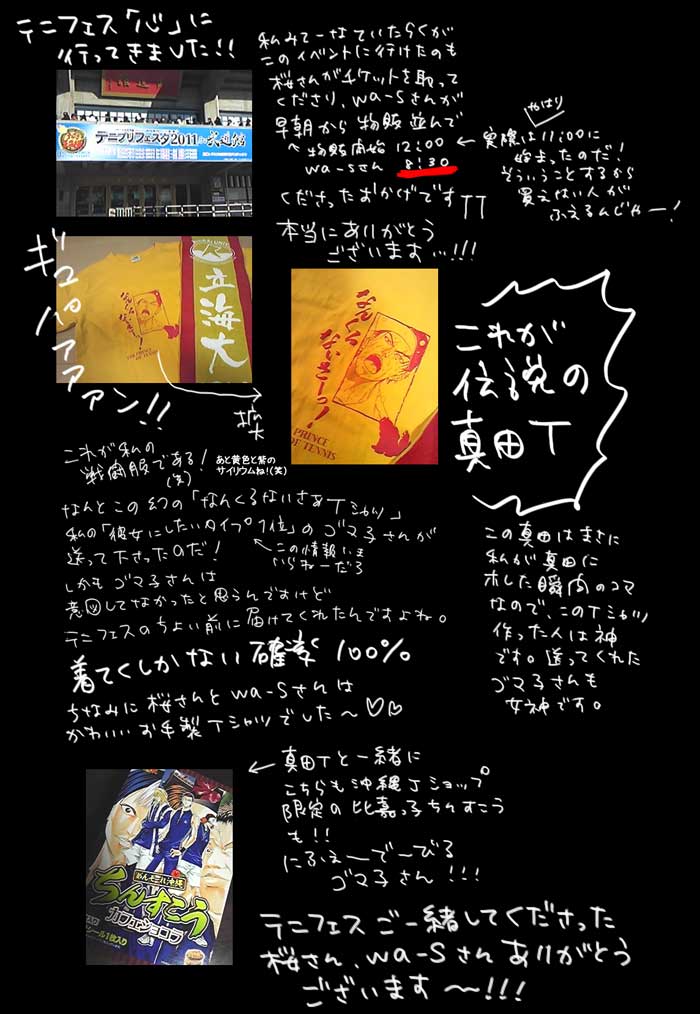 テニフェス「心」に
行ってきました!!
私みてーなていたらくが
このイベントに行けたのも
桜さんがチケットを取って
くださり、wa-sさんが
早朝から物販並んで
↑物販開始 12:00
wa-sさん 8:30
くださったおかげですTT
本当にありがとう
ございます…!!!
やはり
← 実際は11:00に
始まったのだ!
そういうことするから
買えない人が
ふえるんじゃー!
テニプリフェスタ2011 in 武道館
ギュパアアアン!!
立海大
なんくるないさーっ!
THE PRINCE OF TENNIS
拡大
なんくる
ないさーっ!
PRINCE
OF TENNIS
これが
伝説の
真田T
これが私の
戦闘服である!
(笑)
あと黄色と紫の
サイリウムね!(笑)
なんとこの幻の「なんくるないさぁTシャツ」
私の「彼女にしたいタイプ1位」のゴマ子さんが
送って下さったのだ!
↑この情報いま
いらねーだろ
しかもゴマ子さんは
意図してなかったと思うんですけど
テニフェスのちょい前に届けてくれたんですよね。
着てくしかない確率 100%
ちなみに桜さんとwa-sさんは
かわいいお手製Tシャツでした~♡♡
この真田はまさに
私が真田に
ホレた瞬間のコマ
なので、このTシャツ
作った人は神
です。送ってくれた
ゴマ子さんも
女神です。
← 真田Tと一緒に
こちらも沖縄Jショップ
限定の比嘉っ子ちんすこう
も!!
にふぇーでーびる
ゴマ子さん!!!
めんそーれ沖縄
ちんすこう
カフェショコラ
シール1枚入り
テニフェスご一緒してくださった
桜さん、wa-sさんありがとう
ございます~!!!